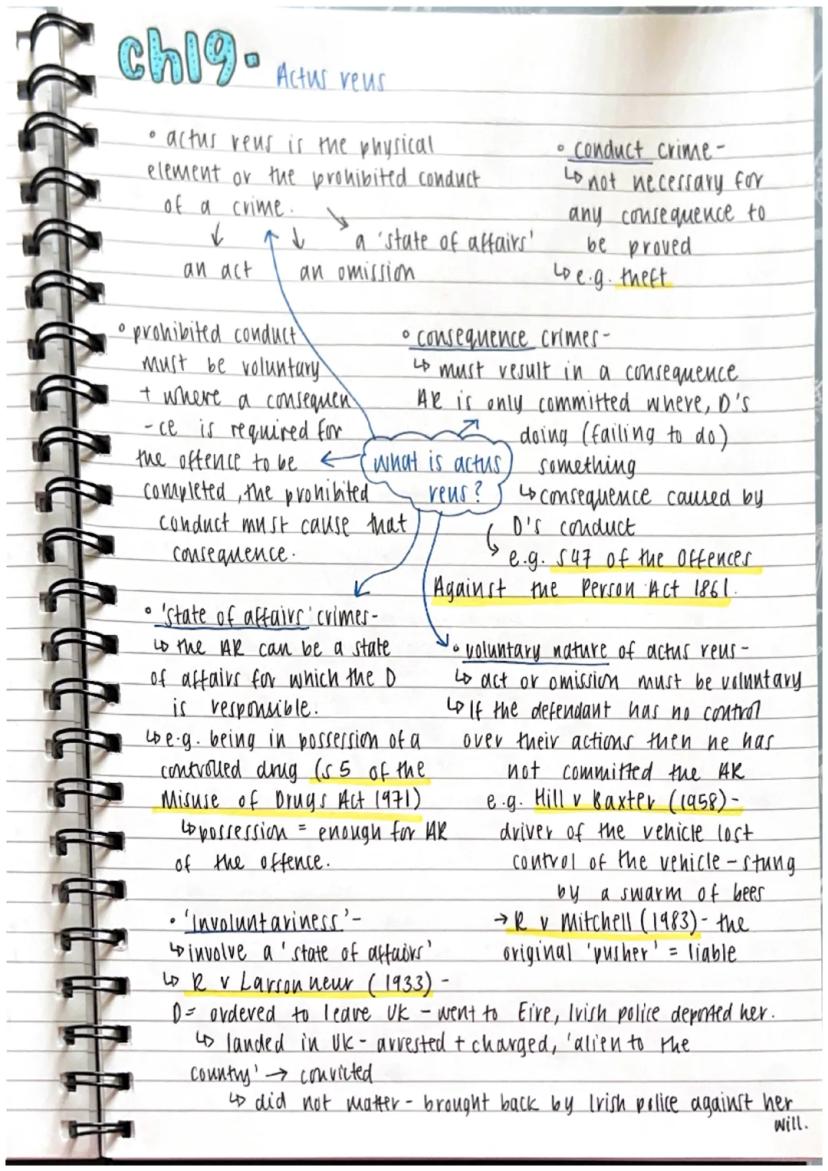 ch19.
Actus reus
• actus reus is the physical
element or the prohibited conduct
of a crime.
an act
an omission
a 'state of affairs'
• conduct crime-
↳ not necessary for
any consequence to
be proved
↳ e.g. theft
• prohibited conduct
must be voluntary
+ where a consequen
-ce is required for
the offence to be
completed, the prohibited
conduct must cause that
consequence.
• consequence crimes-
↳ must result in a consequence
AR is only committed where, D's
doing (failing to do)
something
↳ consequence caused by
D's conduct
↳ e.g. s47 of the Offences
Against the Person Act 1861.
what is actus
reus?
• 'state of affairs' crimes-
↳ the AR can be a state
of affairs for which the D
is responsible.
↳ e.g. being in possession of a
controlled drug (s5 of the
Misuse of Drugs Act 1971)
↳ possession = enough for AR
of the offence.
• voluntary nature of actus reus-
↳ act or omission must be voluntary
↳ If the defendant has no control
over their actions then he has
not committed the AR
e.g. Hill v Baxter (1958)-
driver of the vehicle lost
control of the vehicle - stung
by a swarm of bees
→ R v Mitchell (1983)- the
original 'pusher' = liable
• 'involuntariness'-
↳ involve a 'state of affairs'
↳ R v Larsonneur (1933) -
D= ordered to leave UK - went to Eire, Irish police deported her.
↳ landed in UK- arrested + charged, 'alien to the
country' → convicted
↳ did not matter - brought back by Irish police against her
will.